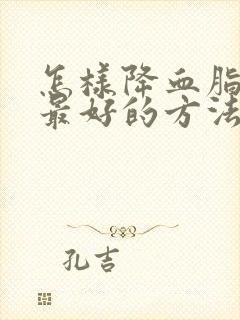 怎樣降血脂
最好的方法
孔吉